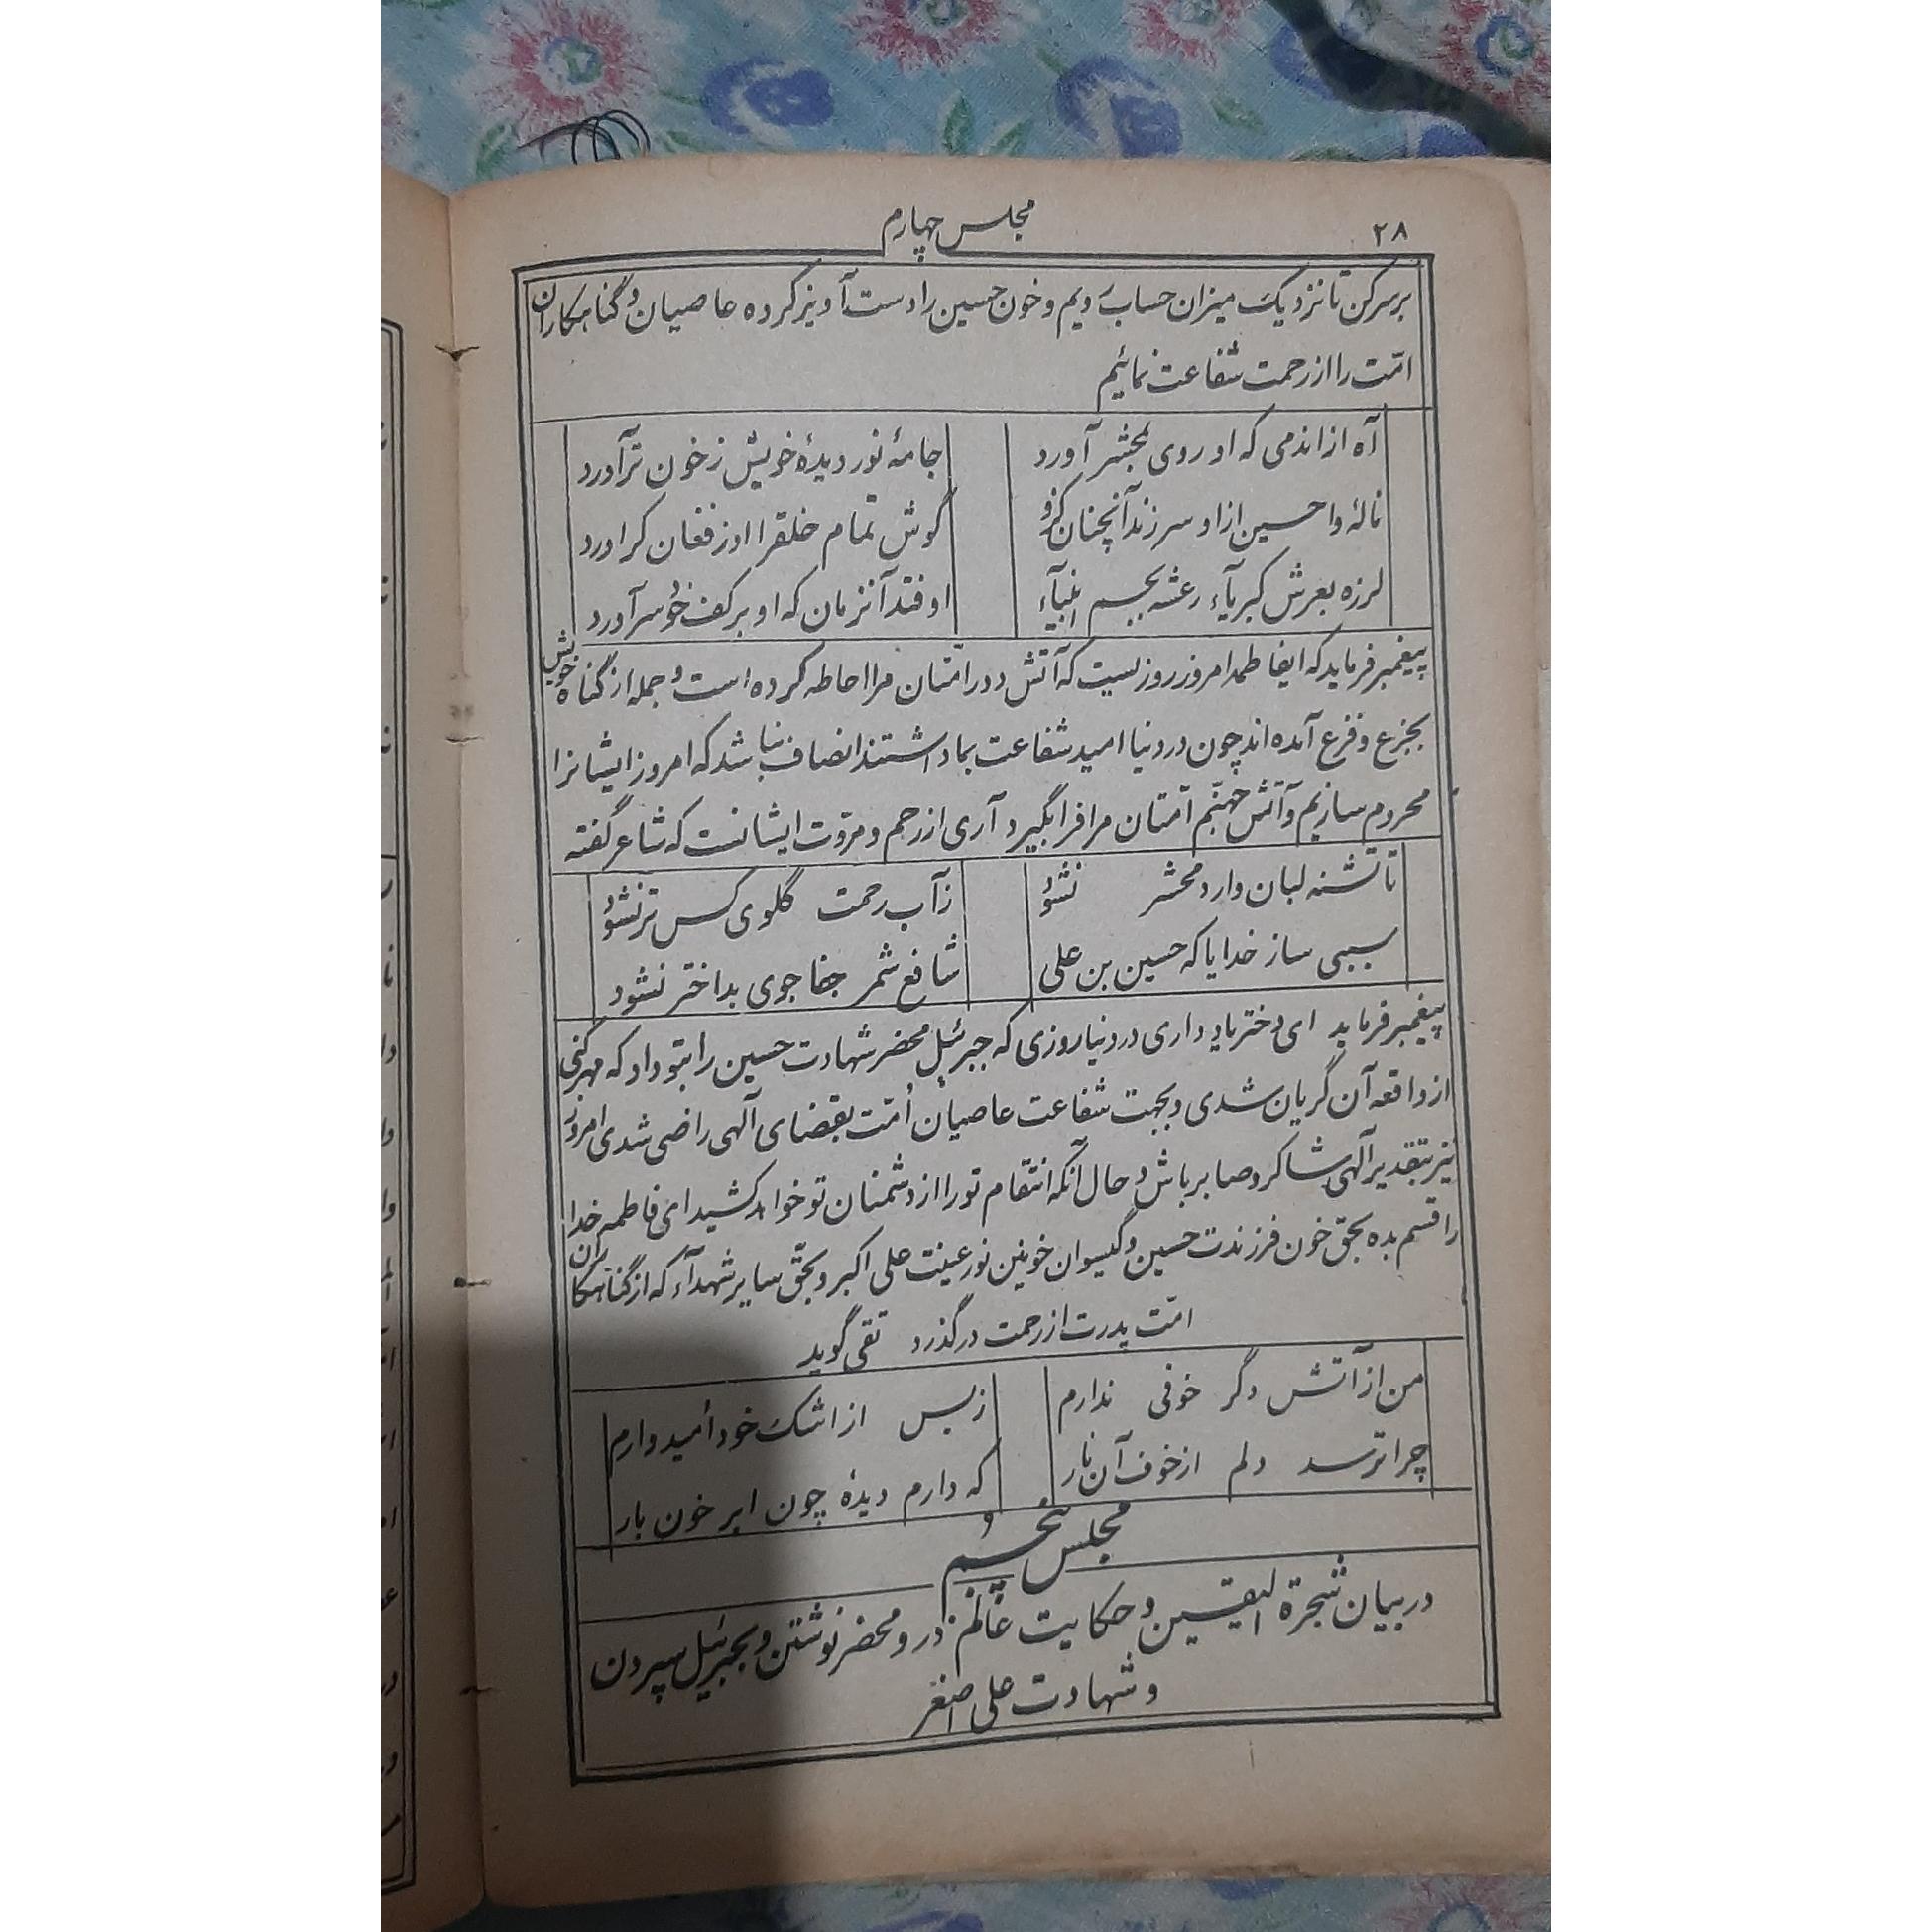 ۲۸
مجلس چهارم
برسر کن تا نزدیک میزان حساب رویم و خون حسین را دست آویز کرده عاصیان و گناهکاران
امّت را از رحمت شفاعت نمائیم
آه از اندمی که او روی بمحشر آورد جامهٔ نور دیدهٔ خویش ز خون تر آورد
نالهٔ وا حسین از او سر زند آنچنان کزو گوش تمام خلقرا او ز فغان کر اورد
لرزه بعرش کبریآء رعشه بجسم انبیآء اوفتد آنزمان که او بر کف خود سر آورد
پیغمبر فرماید که ایفاطمه امروز روزیست که آتش دور امّتان مرا احاطه کرده است و جمله از گناه خویش
بجزع و فزع آمده اند چون در دنیا امید شفاعت بما داشتند انصاف نباشد که امروز ایشانرا
محروم سازیم و آتش جهنّم امّتان مرا فرا بگیرد آری از رحم و مروّت ایشانست که شاعر گفته
تا تشنه لبان وارد محشر نشود ز آب رحمت گلوی کس تر نشود
سببی ساز خدایا که حسین بن علی شافع شمر جفا جوی بداختر نشود
پیغمبر فرماید ای دختر یاد داری در دنیا روزی که جبرئیل محضر شهادت حسین را بتو داد که مهر کنی
از واقعه آن گریان شدی و بجهت شفاعت عاصیان اُمّت بقضای آلهی راضی شدی امروز
نیز بتقدیر آلهی شاکر و صابر باش و حال آنکه انتقام تو را از دشمنان تو خواهد کشید ای فاطمه خدا
را قسم بده بحقّ خون فرزندت حسین و گیسوان خونین نور عینت علی اکبر و بحقّ سایر شهدآء که از گناهکاران
امّت پدرت از رحمت درگذرد تقی گوید
من از آتش دگر خوفی ندارم ز بس از اشک خود اُمیدوارم
چرا ترسد دلم از خوف آن نار که دارم دیدهٔ چون ابر خون بار
مجلس پنجم
در بیان شجرة الیقین و حکایت عالم ذر و محضر نوشتن و بجبرئیل سپردن
و شهادت علی اصغر